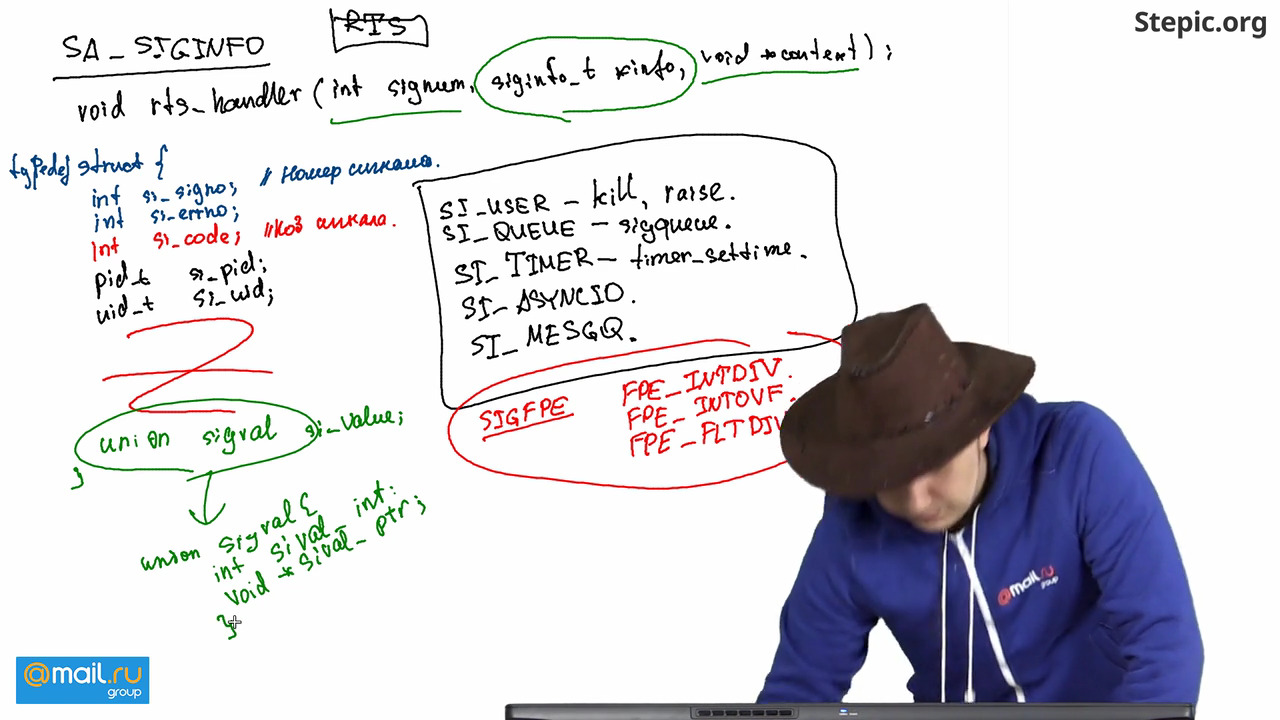 Stepic.org
SA_SIGINFO
RTS
void rts_handler (int signum, siginfo_t *info, void *context);
typedef struct {
int si_signo; // Номер сигнала.
int si_errno;
int si_code; // Код сигнала.
pid_t si_pid;
uid_t si_uid;
union sigval si_value;
}
union sigval {
int sival_int;
void *sival_ptr;
}
SI_USER – kill, raise.
SI_QUEUE – sigqueue.
SI_TIMER – timer_settime.
SI_ASYNCIO.
SI_MESGQ.
SIGFPE
FPE_INTDIV.
FPE_INTOVF.
FPE_FLTDIV
@mail.ru
group
@mail.ru
group